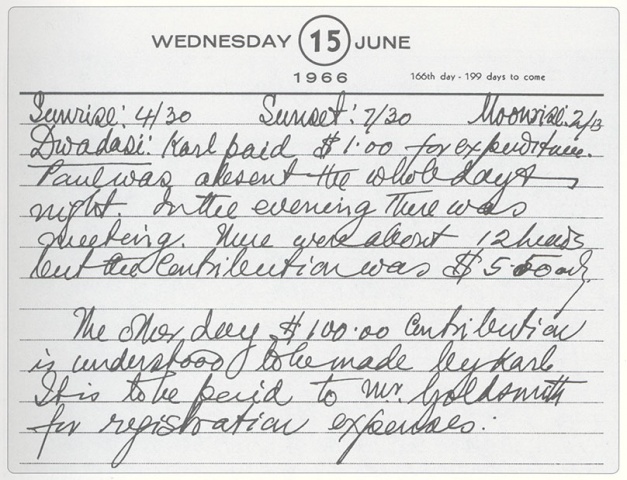 WEDNESDAY 15 JUNE
1966
166th day - 199 days to come
Sunrise: 4/30 Sunset: 7/30 Moonrise: 2/13
Dwadasi: Karl paid $1.00 for expenditure.
Paul was absent the whole day &
night. In the evening there was
meeting. There were about 12 heads
but the contribution was $5.50 only.
The other day $100.00 contribution
is understood to be made by Karl
It is to be paid to Mr. Goldsmith
for registration expenses.